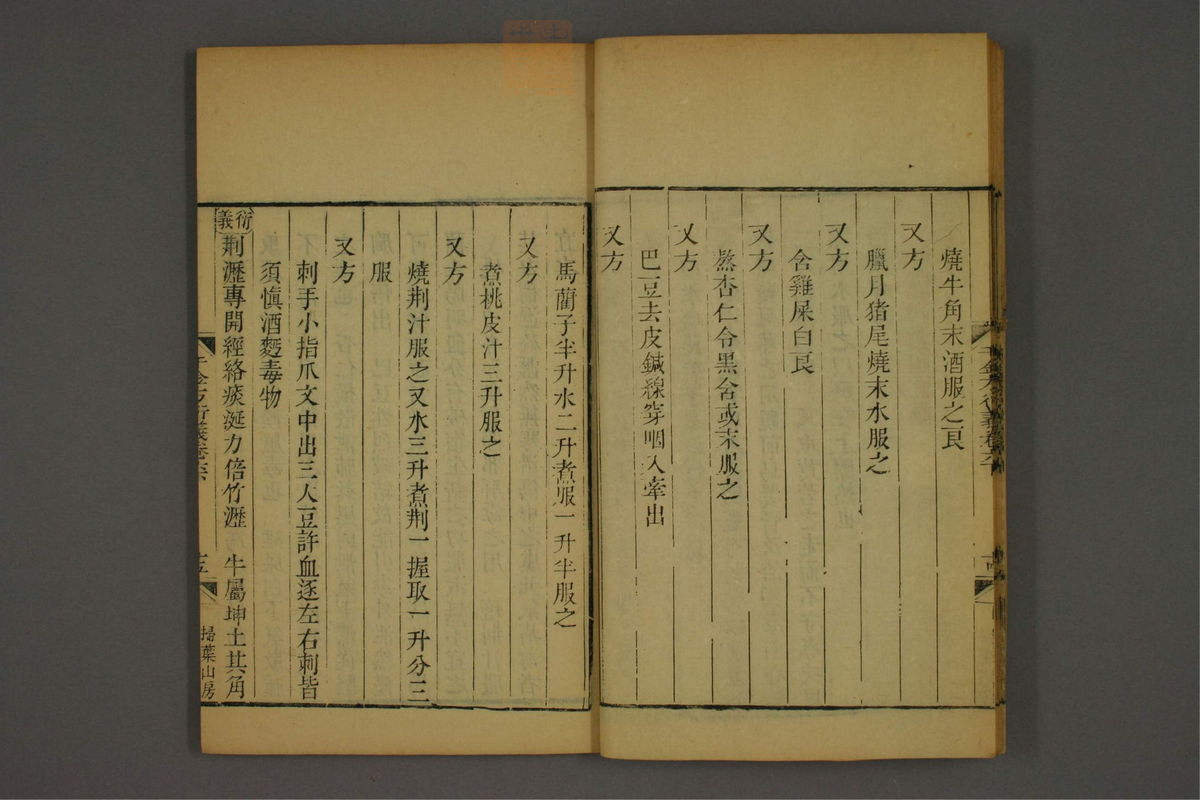 燒牛角末酒服之良
又方
臘月猪尾燒末水服之
又方
含雞屎白良
又方
熬杏仁令黑含或末服之
又方
巴豆去皮鍼線穿咽入牽出
又方
千金方衍義卷六
十四
馬藺子半升水二升煮服一升半服之
又方
煮桃皮汁三升服之
又方
燒荆汁服之又水三升煮荆一握取一升分三
服
又方
刺手小指爪文中出三大豆許血逐左右刺皆
須慎酒麪毒物
衍義
荆瀝專開經絡痰涎力倍竹瀝 牛屬坤土其角
千金方衍義卷六
十五
掃葉山房